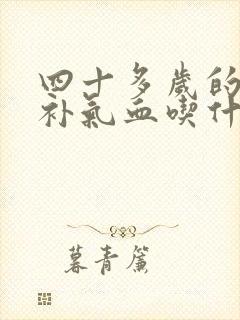 四十多歲的
补氣血喫什
暮青簾